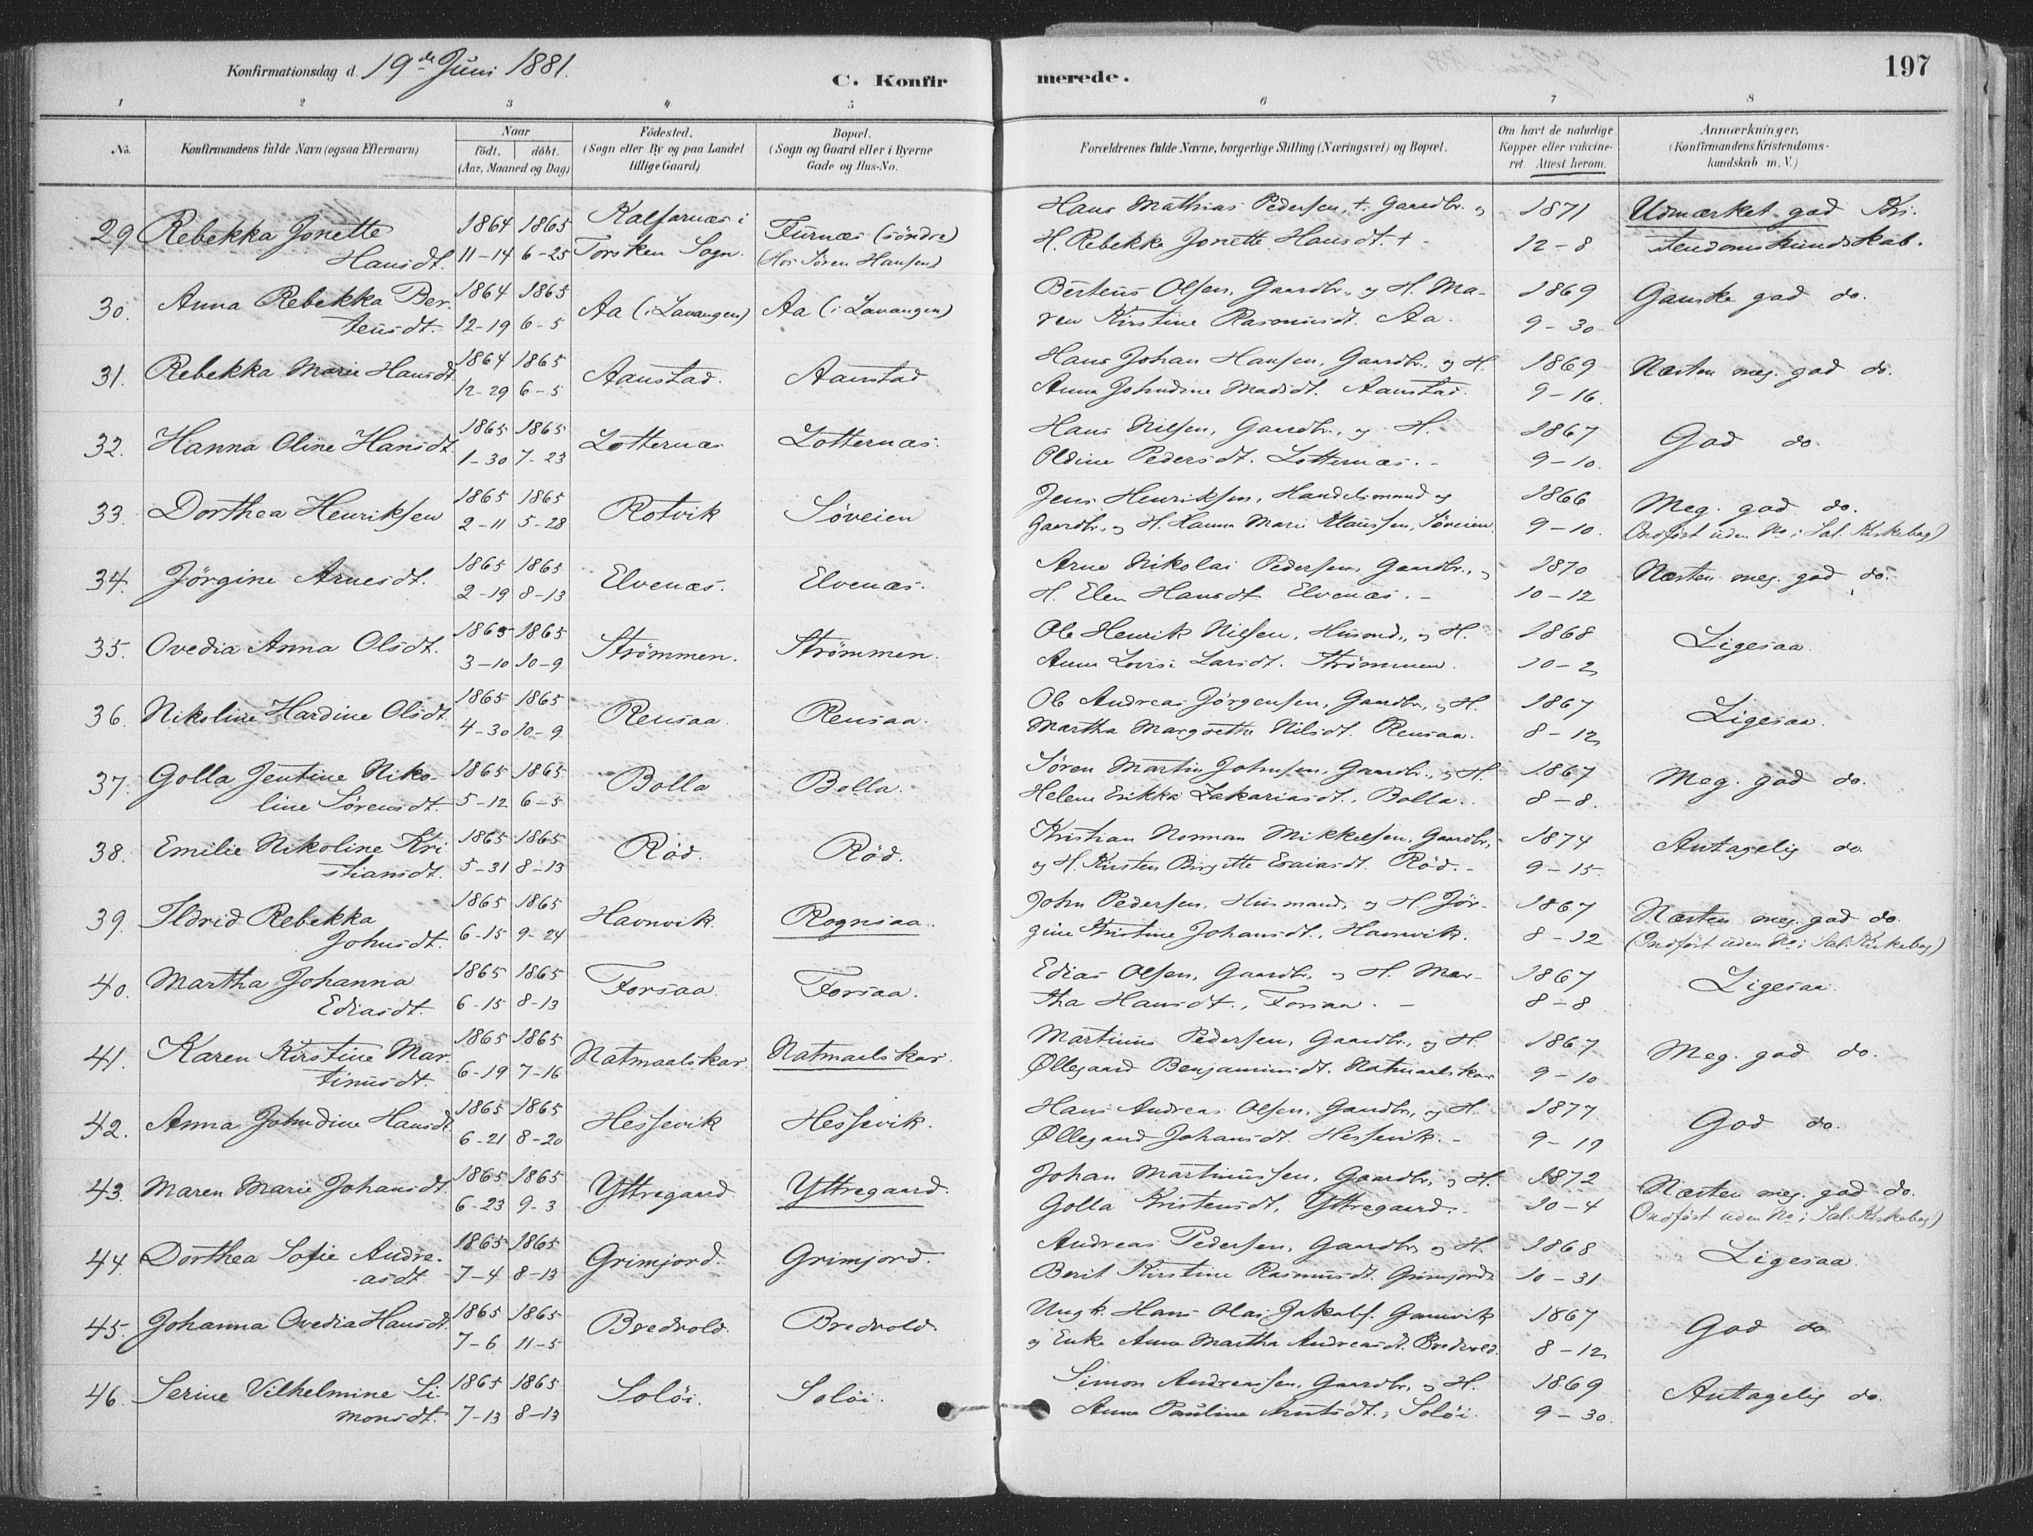 Konfirmationsdag d. 19de Juni 1881.
C. Konfirmerede.
197
1 2 3 4 5 6 7 8
No. Konfirmandens fulde Navn (ogsaa Efternavn) Naar födt. döbt. (Aar, Maaned og Dag) Födested. (Sogn eller By og paa Landet tillige Gaard) Bopæl. (Sogn og Gaard eller i Byerne Gade og Hus-No. Forældrenes fulde Navne, borgerlige Stilling (Næringsvei) og Bopæl. Om havt de naturlige Kopper eller vakcineret. Attest herom. Anmærkninger, (Konfirmandens Kristendomskundskab m. V.)
29. Rebekka Jonette 1864 1865 Kalfarnæs i Furnæs (söndre) Hans Mathias Pedersen, +, Gaardbr. og 1871 Udmærket god Kri-
Hansdt. 11-14 6-25 Torsken Sogn. (Hos Søren Hansen) H. Rebekke Jonette Hansdt. + - 12-8 stendomskundskab.
30. Anna Rebekka Ber- 1864 1865 Aa (i Lavangen) Aa (i Lavangen) Berteus Olsen, Gaardbr., og H. Ma- 1869 Ganske god do.
teusdt. 12-19 6-5 ren Kirstine Rasmusdt. Aa. 9-30
31. Rebekka Marie Hansdt 1864 1865 Aanstad. Aanstad Hans Johan Hansen, Gaardbr., og H. 1869 Næsten meg. god do.
12-29 6-5 Anna Johndine Madsdt. Aanstad. 9-16.
32. Hanna Oline Hansdt. 1865 1865 Lotternæs Lotternæs. Hans Nilsen, Gaardbr., og H. 1867 God do.
1-30 7-23 Oldine Pedersdt. Lotternæs. - 9-10.
33. Dorthea Henriksen 1865 1865 Rotvik Søveien Jens Henriksen, Handelsmand og 1866 Meg. god do.
2-11 5-28 Gaardbr., og H. Hanna Marie Klaussen, Søveien 9-10. (Indført uden No i Sal. Kirkebog)
34. Jörgine Arnesdt. 1865 1865 Elvenæs. Elvenæs. Arne Nikolai Pedersen, Gaardbr., og 1870 Næsten meg. god do.
2-19 8-13 H. Elen Hansdt. Elvenæs. - 10-12
35. Ovedia Anna Olsdt. 1865 1865 Strömmen. Strömmen. Ole Henrik Nilsen, Husmd., og H. 1868 Ligesaa.
3-10 10-9 Anna Lovise Larsdt. Strömmen. 10-2
36. Nikoline Hardine Olsdt 1865 1865 Rensaa. Rensaa. Ole Andreas Jörgensen, Gaardbr., og H. 1867 Ligesaa.
4-30 10-9 Martha Margrethe Nilsdt. Rensaa. 8-12
37. Golla Jentine Niko- 1865 1865 Bolla Bolla. Søren Martin Johnsen, Gaardbr., og H. 1867 Meg. god do.
line Sørensdt 5-12 6-5 Helene Erikka Zakariasdt., Bolla. 8-8.
38. Emilie Nikoline Kri 1865 1865 Röd. Röd. Kristian Norman Mikkelsen, Gaardbr, 1874 Antagelig do
stiansdt. 5-31 8-13 og H. Kirsten Birgitte Esaiasdt. Röd. - 9-15.
39. Ildrid Rebekka 1865 1865 Havnvik. Rognsaa. John Pedersen, Husmand, og H. Jör- 1867 Næsten meg. god do.
Johnsdt. 6-15 9-24 gine Kristine Johansdt., Havnvik. 8-12 (Indført uden No i Sal. Kirkebog)
40. Martha Johanna 1865 1865 Forsaa. Forsaa. Edias Olsen, Gaardbr. og H. Mar- 1867 Ligesaa.
Ediasdt. 6-15 8-13 tha Hansdt., Forsaa. - 8-8
41. Karen Kirstine Mar 1865 1865 Natmaalskar. Natmaalskar. Martinus Pedersen, Gaardbr., og H. 1867 Meg. god do.
tinusdt. 6-19 7-16 Øllegaard Benjaminsdt. Natmaalskar 9-10
42. Anna Johndine Hansdt 1865 1865 Hessevik Hessevik. Hans Andreas Olsen, Gaardbr., og H. 1877 God do.
6-21 8-20 Øllegaard Johansdt. Hessevik. - 9-19
43. Maren Marie Johansdt. 1865 1865 Yttregaard. Yttregaard. Johan Martinussen, Gaardbr., og H. 1872 Næsten meg. god do.
6-23 9-3 Golla Kristensdt, Yttregaard. 10-4 (Indført uden No i Sal. Kirkebog)
44. Dorthea Sofie Andre- 1865 1865 Grimjord. Grimjord. Andreas Pedersen, Gaardbr. og H. 1868 Ligesaa.
asdt. 7-4 8-13 Berit Kirstine Rasmusdt. Grimjord. 10-31
45. Johanna Ovedia Hansdt. 1865 1865 Bredvold. Bredvold. Ungk. Hans Olai Jakobs. Gamvik 1867 God do
7-6 11-5 og Enke Anna Martha Andreasdt. Bredvold. 8-12
46. Serine Vilhelmine Si 1865 1865 Solöi. Solöi. Simon Andreassen, Gaardbr. og H. 1869 Antagelig do.
monsdt. 7-13 8-13 Anna Pauline Knutsdt., Solöi. 9-30.